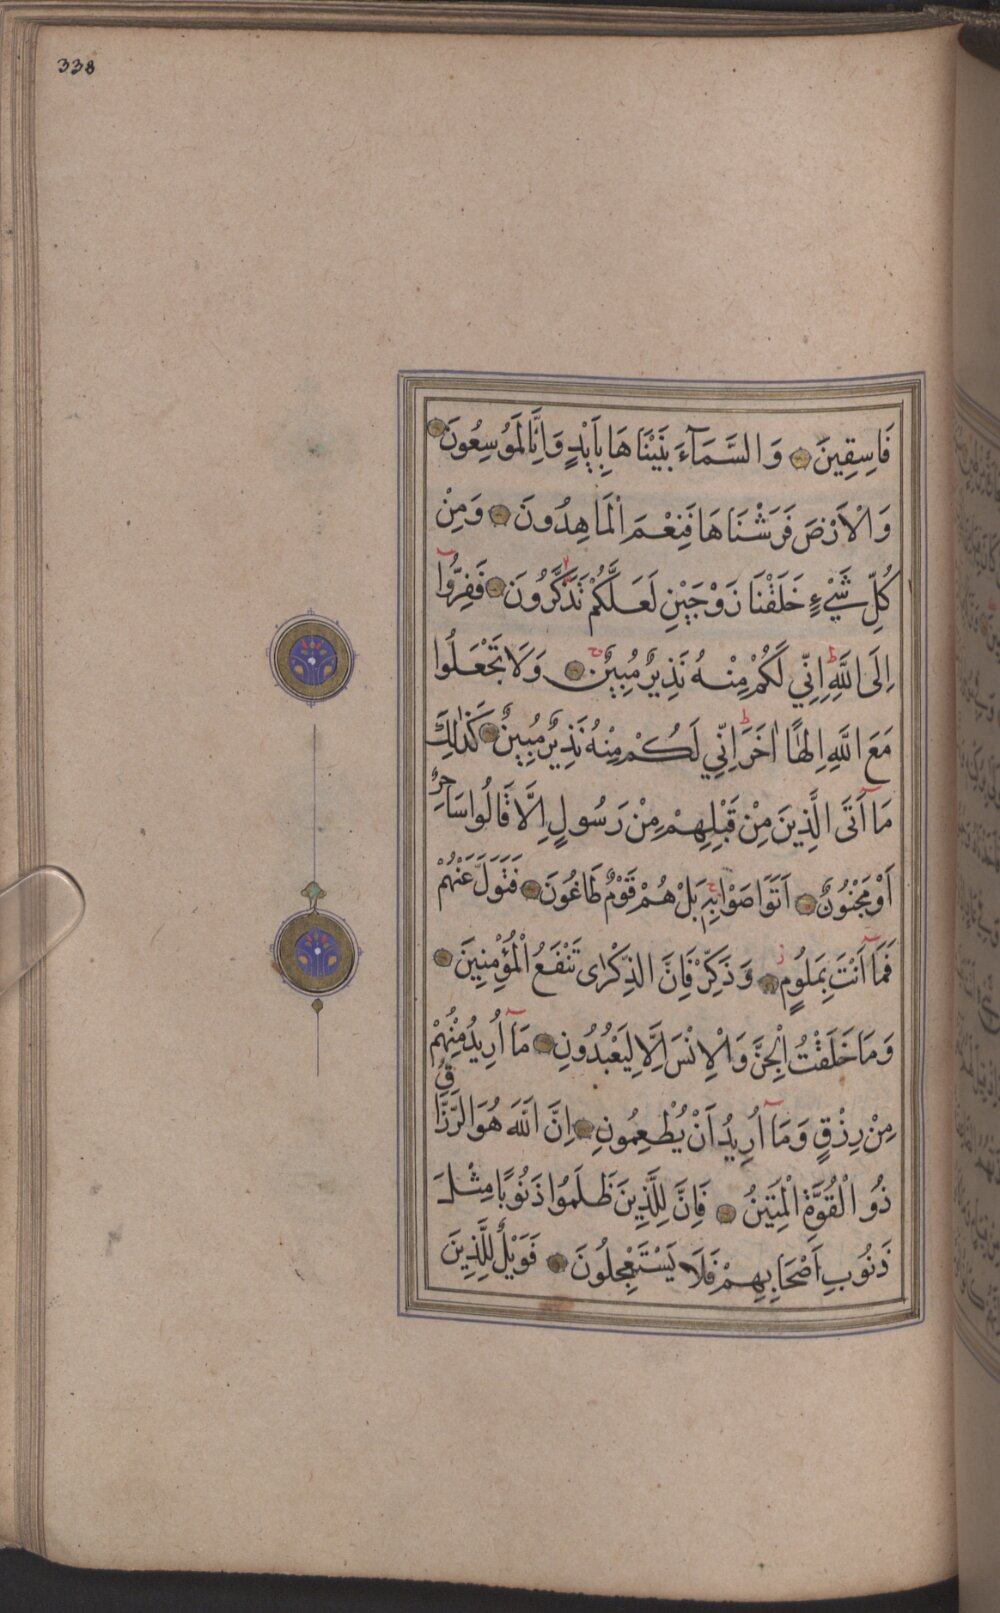 338
فَاسِقِينَ وَالسَّمَآءَ بَنَيْنَاهَا بِاَيْدٍ وَاِنَّا لَمُوسِعُونَ
وَالْاَرْضَ فَرَشْنَاهَا فَنِعْمَ الْمَاهِدُونَ وَمِنْ
كُلِّ شَيْءٍ خَلَقْنَا زَوْجَيْنِ لَعَلَّكُمْ تَذَكَّرُونَ فَفِرُّوٓا
اِلَى اللّٰهِ اِنِّي لَكُمْ مِنْهُ نَذِيرٌ مُبِينٌ وَلَا تَجْعَلُوا
مَعَ اللّٰهِ اِلٰهًا اٰخَرَ اِنِّي لَكُمْ مِنْهُ نَذِيرٌ مُبِينٌ كَذٰلِكَ
مَآ اَتَى الَّذِينَ مِنْ قَبْلِهِمْ مِنْ رَسُولٍ اِلَّا قَالُوا سَاحِرٌ
اَوْ مَجْنُونٌ اَتَوَاصَوْا بِهِ بَلْ هُمْ قَوْمٌ طَاغُونَ فَتَوَلَّ عَنْهُمْ
فَمَآ اَنْتَ بِمَلُومٍ وَذَكِّرْ فَاِنَّ الذِّكْرٰى تَنْفَعُ الْمُؤْمِنِينَ
وَمَا خَلَقْتُ الْجِنَّ وَالْاِنْسَ اِلَّا لِيَعْبُدُونِ مَآ اُرِيدُ مِنْهُمْ
مِنْ رِزْقٍ وَمَآ اُرِيدُ اَنْ يُطْعِمُونِ اِنَّ اللّٰهَ هُوَ الرَّزَّاقُ
ذُو الْقُوَّةِ الْمَتِينُ فَاِنَّ لِلَّذِينَ ظَلَمُوا ذَنُوبًا مِثْلَ
ذَنُوبِ اَصْحَابِهِمْ فَلَا يَسْتَعْجِلُونَ فَوَيْلٌ لِلَّذِينَ